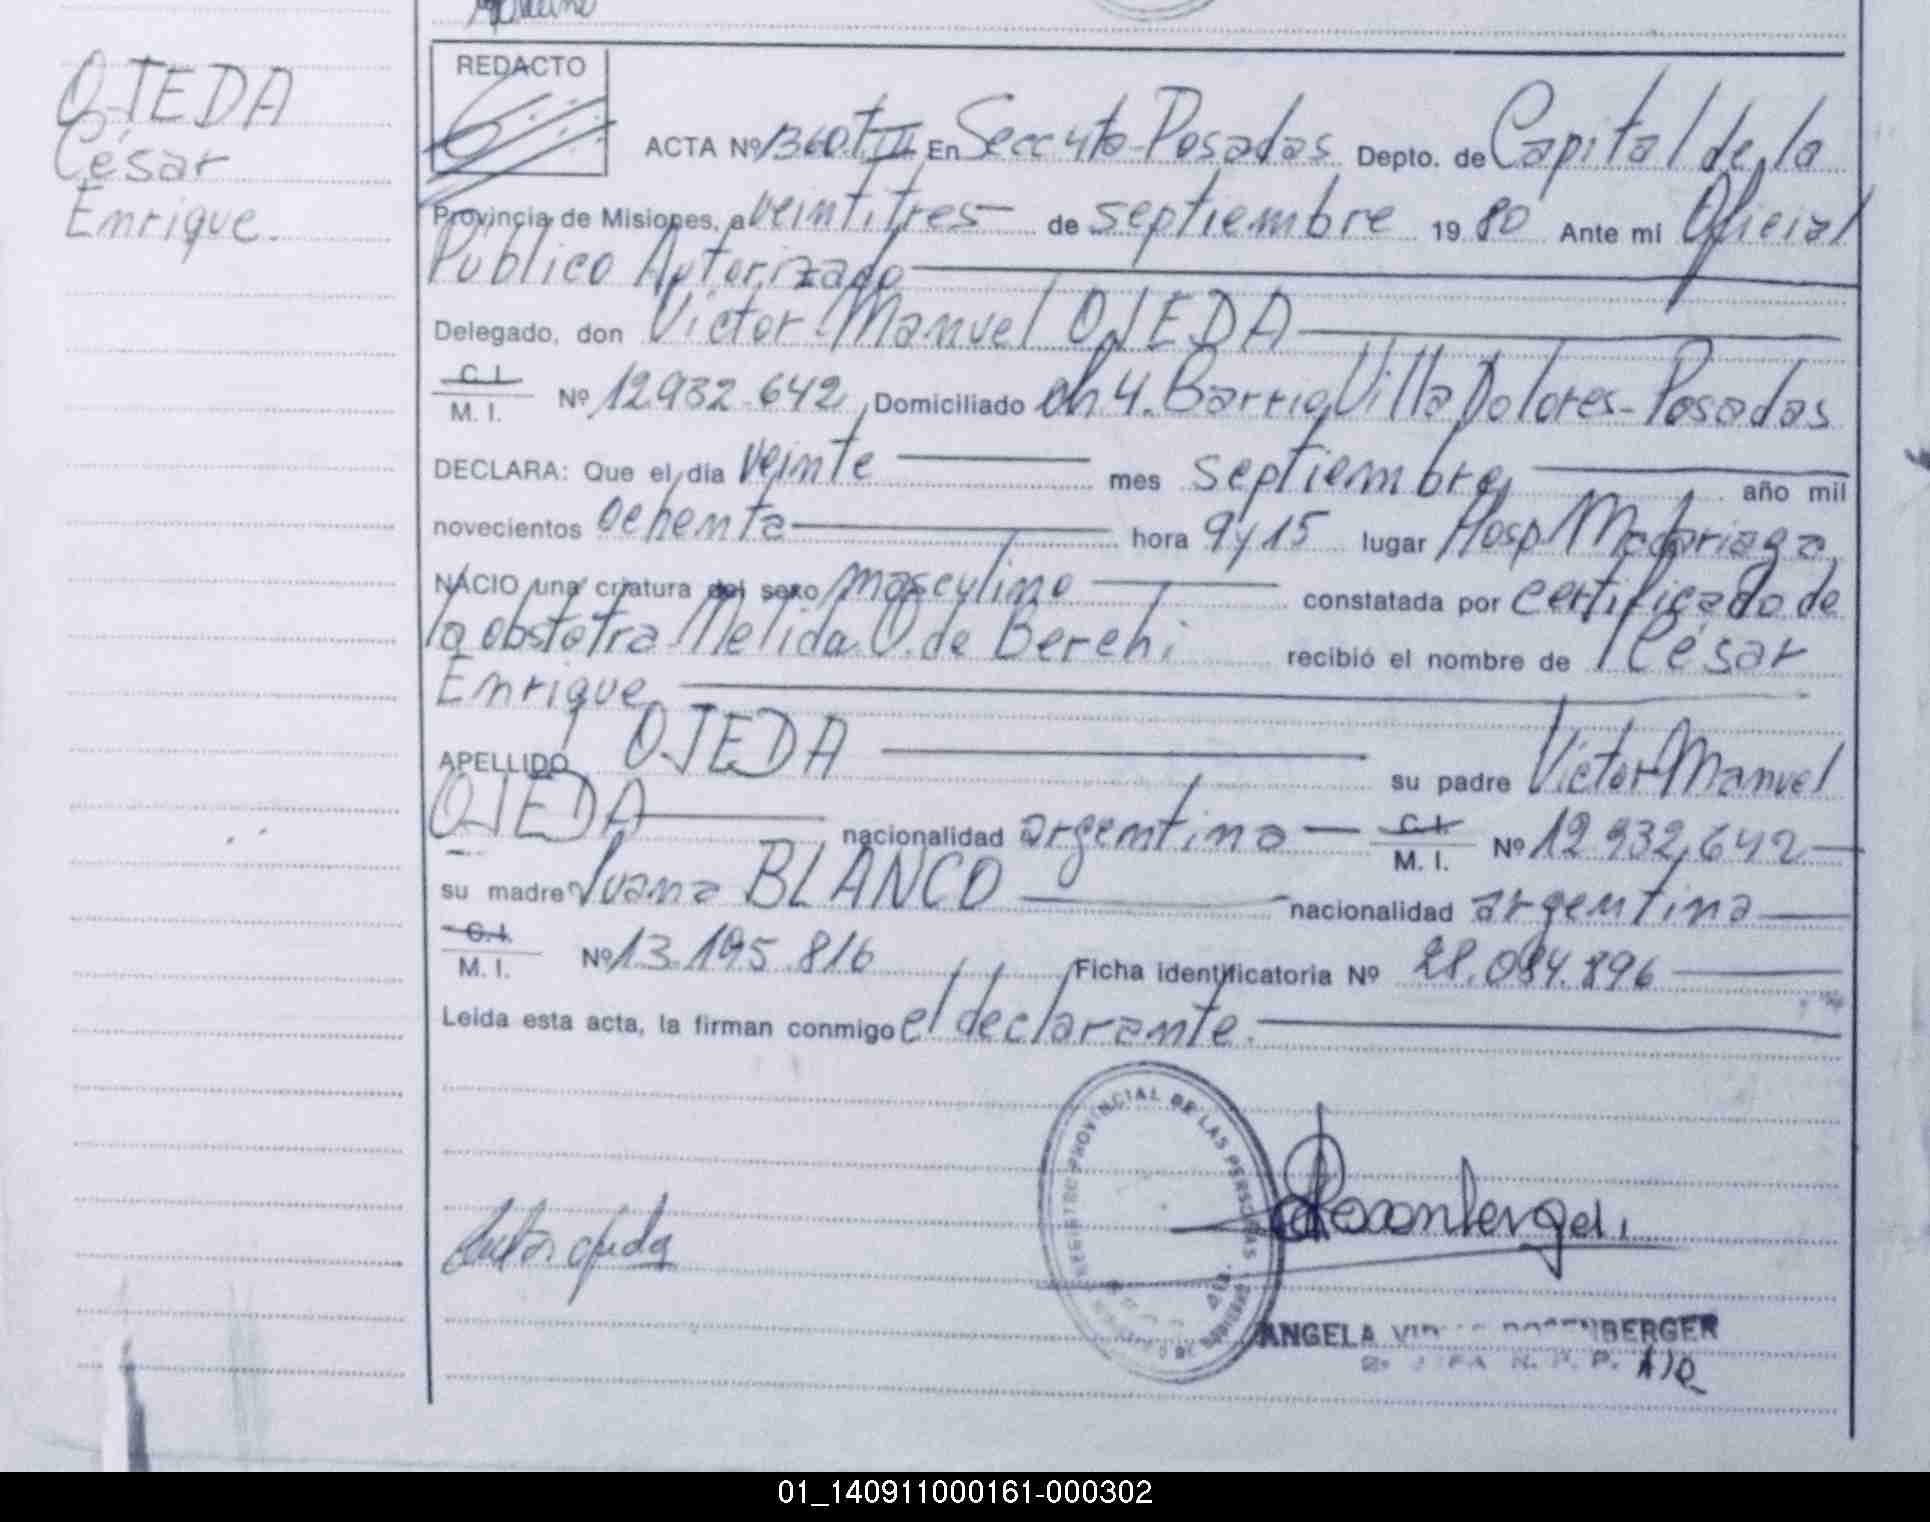 OJEDA
César
Enrique.
REDACTO
ACTA Nº 1360 T III En Secc 4ta - Posadas Depto. de Capital de la
Provincia de Misiones, a veintitres de septiembre 19 80 Ante mi Oficial
Público Autorizado
Delegado, don Victor Manuel OJEDA
C. I.
M. I. Nº 12932.642, Domiciliado ch 4. Barrio Villa Dolores - Posadas
DECLARA: Que el día veinte mes septiembre año mil
novecientos ochenta hora 9 y 15 lugar Hosp Madariaga,
NACIO una criatura del sexo masculino constatada por certificado de
la obstetra Melida O. de Berchi recibió el nombre de César
Enrique
APELLIDO OJEDA su padre Víctor Manuel
OJEDA nacionalidad argentina C. I.
M. I. Nº 12932,642
su madre Juana BLANCO nacionalidad argentina
C. I.
M. I. Nº 13.195.816 Ficha identificatoria Nº 28.094.896
Leida esta acta, la firman conmigo el declarante.
REGISTRO PROVINCIAL DE LAS PERSONAS
ANGELA ROSENBERGER
R. P. P.
01_140911000161-000302